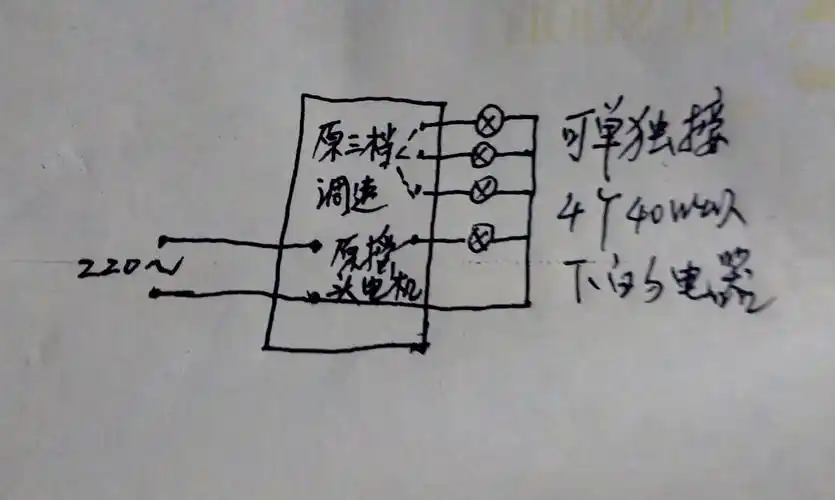 原三档
调速
220～
原摇
头电机
可单独接
4个40W以
下的电器